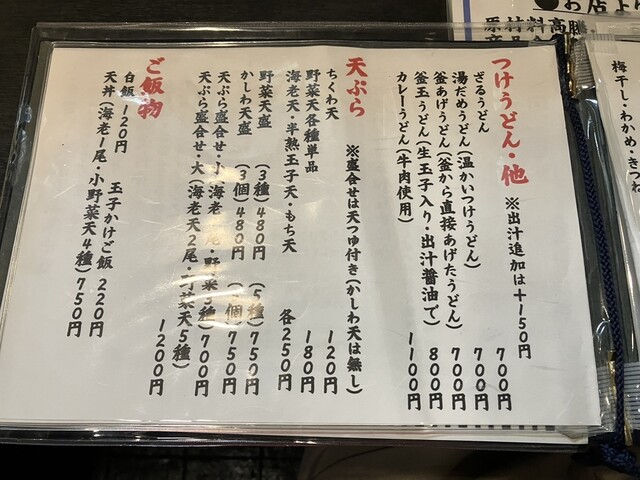 つけうどん・他
※出汁追加は＋150円
ざるうどん 700円
湯だめうどん(温かいつけうどん) 700円
釜あげうどん(釜から直接あげたうどん) 700円
釜玉うどん(生玉子入り・出汁醤油で) 800円
カレーうどん(牛肉使用) 1100円
天ぷら
※盛合せは天つゆ付き(かしわ天は無し)
ちくわ天 120円
野菜天各種単品 180円
海老天・半熟玉子天・もち天 各250円
野菜天盛 (3種)480円 (5種)750円
かしわ天盛 (3個)480円 (5個)750円
天ぷら盛合せ・小(海老天1尾・野菜3種)700円
天ぷら盛合せ・大(海老天2尾・野菜天5種)
1200円
ご飯物
白飯120円 玉子かけご飯 220円
天丼(海老1尾・小野菜天4種)750円
梅干し・わかめ・きつね
●お店より